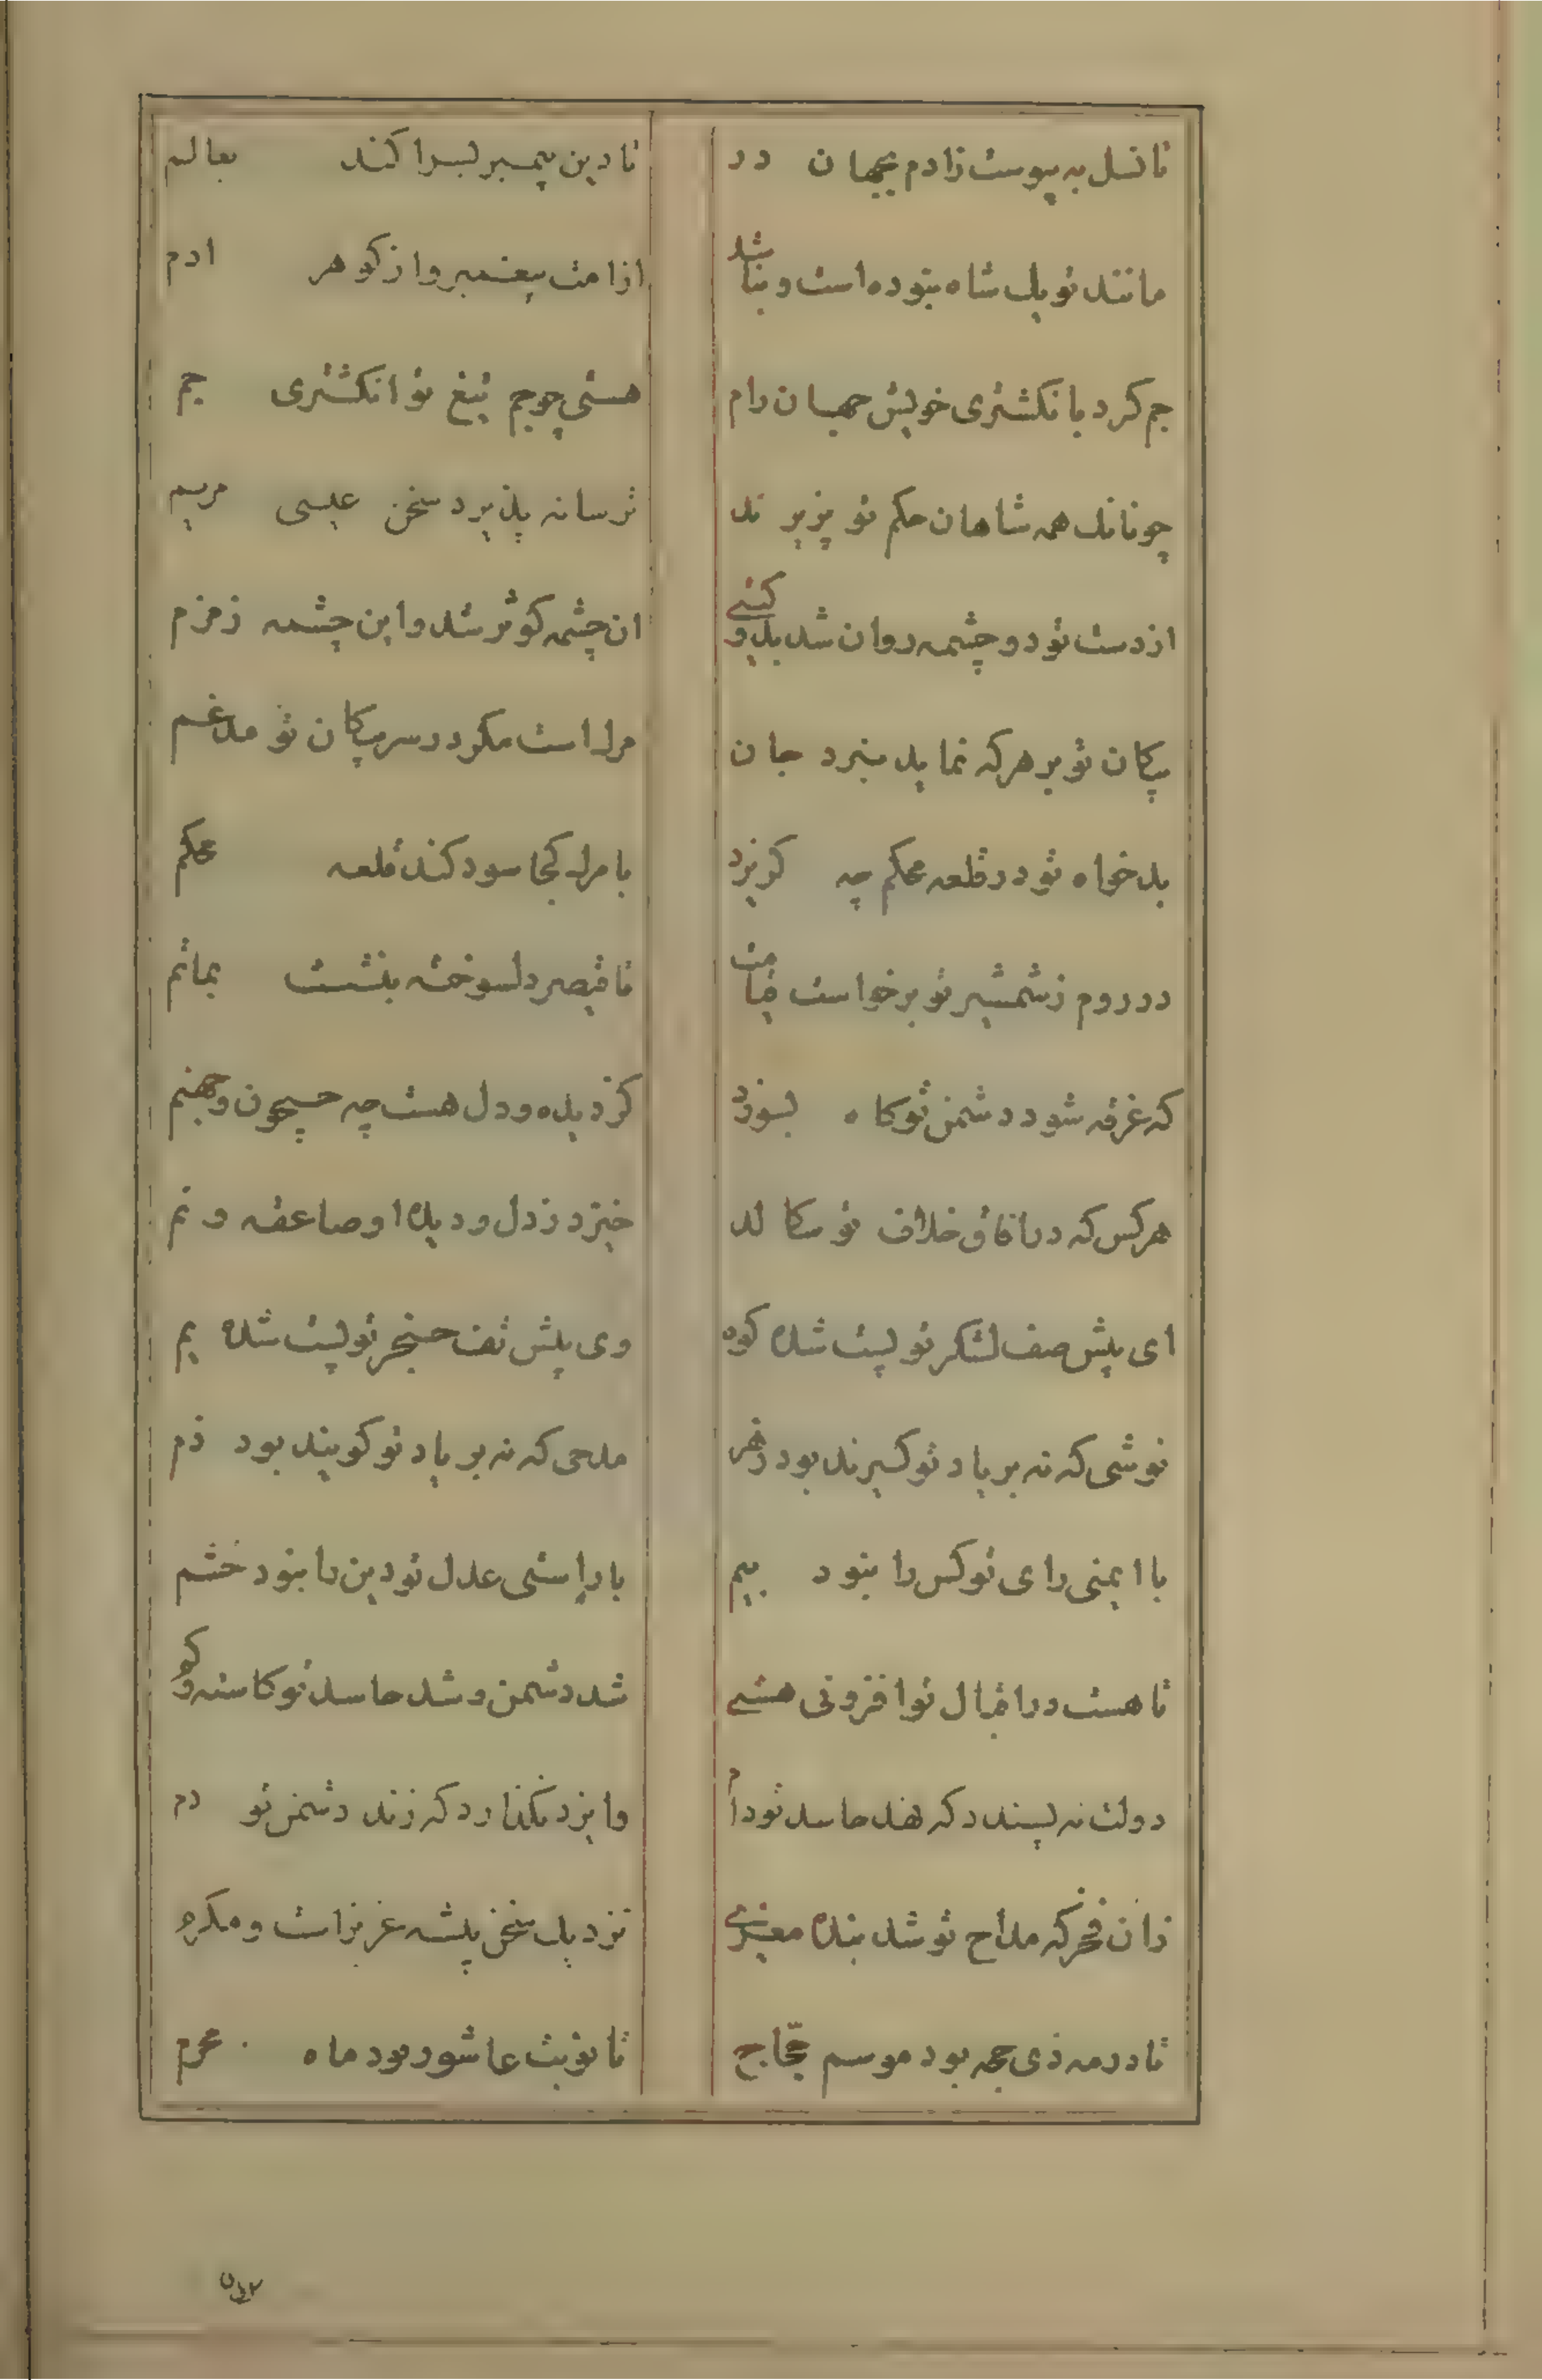 تا نسل به پیوست زادم بجهان در تا دین پیمبر بسرا کند بعالم
مانند تو یک شاه نبوده است و نباشد از امت پیغمبر و از کوهر ادم
جم کرد بانکشتری خویش جهان رام هستی چو جم تیغ تو انکشتری جم
چونانک همه شاهان حکم تو پزیرند ترسا نه پذیرد سخن عیسی مریم
از دست تو دو چشمه روان شد بدو کیتی ان چشمه کوثر شد و این چشمه زمزم
پیکان تو بر هر که نماید نبرد جان مرک است مکر در سر پیکان تو مدغم
بدخواه تو در قلعه محکم چه کریزد با مرک کجا سود کند قلعه محکم
در روم ز شمشیر تو برخواست قیامت تا قیصر دلسوخته بنشست بماتم
که غرقه شود دشمن تو کاه بسوزد کز دیده و دل هست چه جیحون و جهنم
هر کس که در افاق خلاف تو سکالد خیزد ز دل و دیده او صاعقه و نم
ای پیش صف لشکر تو پست شده کوه وی پیش تف خنجر تو پست شده یم
نوشی که نه بر یاد تو کیرند بود زهر مدحی که نه بر یاد تو کویند بود ذم
با ایمنی رای تو کس را نبود بیم با راستی عدل تو دین را نبود خشم
تا هست در اقبال تو افزونی هستی شد دشمن و شد حاسد تو کاسته و کم
دولت نه پسندد که نهد حاسد تو دام و ایزد نکذارد که زند دشمن تو دم
زان فخر که مداح تو شد بنده معزی نزدیک سخن پیشه عزیز است و مکرم
تا در مه ذی حجه بود موسم حجّاج تا نوبت عاشور بود ماه محرم